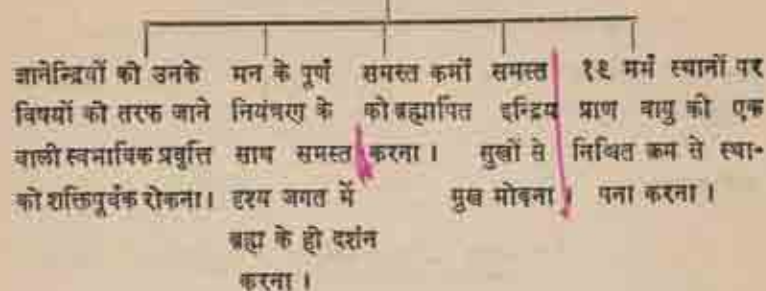 ज्ञानेन्द्रियों को उनके
विषयों की तरफ जाने
वाली स्वभाविक प्रवृत्ति
को शक्तिपूर्वक रोकना।
मन के पूर्ण
नियंत्रण के
साथ समस्त
दृश्य जगत में
ब्रह्म के ही दर्शन
करना।
समस्त कर्मों
को ब्रह्मापित
करना।
समस्त
इन्द्रिय
सुखों से
मुख मोड़ना।
१६ मर्म स्थानों पर
प्राण वायु की एक
निश्चित क्रम से स्था-
पना करना।